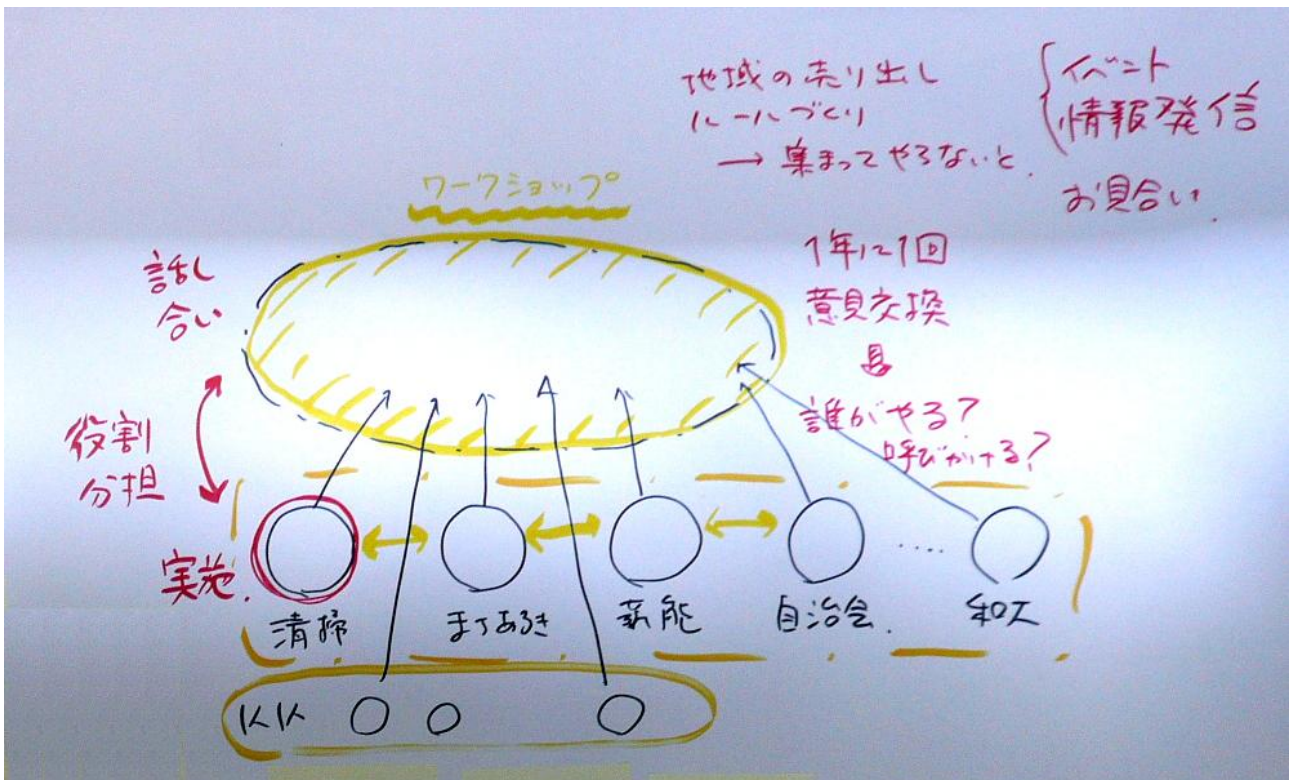 地域の売り出し
ルールづくり
→ 集まってやらないと
イベント
情報発信
お見合い
ワークショップ
話し
合い
1年に1回
意見交換
誰がやる?
呼びかける?
役割
分担
実施.
清掃
まちあるき
薪能
自治会.